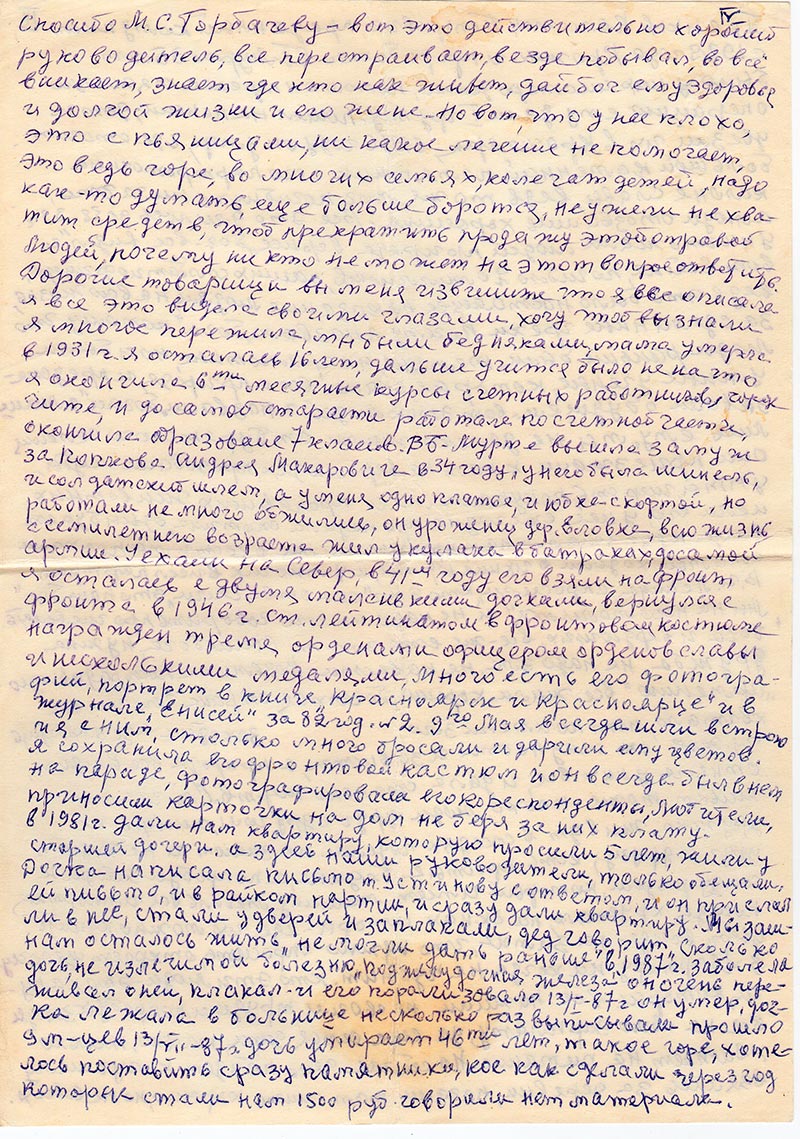 IV
Спасибо М.С. Горбачеву – вот это действительно хороший
руководитель, все перестраивает, везде побывал, во всё
вникает, знает где кто как живет, дай бог ему здоровья
и долгой жизни и его жене. Но вот, что у нас плохо,
это с пьяницами, ни какое лечение не помогает,
это ведь горе, во многих семьях, колечат детей, надо
как-то думать, еще больше боротся, неужели не хва-
тит средств, чтоб прекратить продажу этой отравой
людей, почему ни кто не может на этот вопрос ответить.
Дорогие товарищи вы меня извините что я все описала
я все это видела своими глазами, хочу чтоб вы знали
я многое пережила, мы были бедняками, мама умерла
в 1931 г. я осталась 16 лет, дальше учится было не на что
я окончила 6ти месячные курсы счетных работников,
и до самой старости работала по счетной части,
окончила образование 7 классов. В Б-Мурте вышла замуж
за Копкова Андрея Макаровича в 34 году, у него была шинель,
и солдатский шлем, а у меня одно платье, и юбка с кофтой, но
работали не много обжились, он уроженец дер. Еловка, всю жизнь
с семилетнего возраста жил у кулака в батраках, до самой
армии. Уехали на Север, в 41м году его взяли на фронт
я осталась с двумя маленькими дочками, вернулся с
фронта в 1946 г. ст. лейтинатом в фронтовом костюме
награжден тремя орденами офицером орденов славы
и несколькими медалями, много есть его фотогра-
фий, портрет в книге „Красноярск и Красноярце" и в
журнале „Енисей" за 82 год. №2. 9го Мая всегда шли в строю
и я с ним, столько много бросали и дарили ему цветов.
я сохранила его фронтовой кастюм и он всегда был в нем
на параде, фотографировали его кореспонденты, любители,
приносили карточки на дом не беря за них плату.
в 1981 г. дали нам квартиру, которую просили 5 лет, жили у
старшей дочери. а здесь наши руководители, только обещали,
Дочка написала письмо т. Устинову с ответом, и он прислал
ей письмо, и в райком партии, и сразу дали квартиру. Мы заш-
ли в нее, стали у дверей и заплакали, дед говорит „сколько
нам осталось жить, не могли дать раньше" в 1987 г. заболела
дочь, не излечимой болезню „поджилудочная железа" он очень пере-
живал о ней, плакал и его парализовало 13/I-87 г он умер, доч-
ка лежала в больнице несколько раз выписывали прошло
9 м-цев 13/VII-87 г. дочь умирает 46ти лет, такое горе, хоте-
лось поставить сразу памятники, кое как сделали через год
которые стали нам 1500 руб. говорили нет материала.